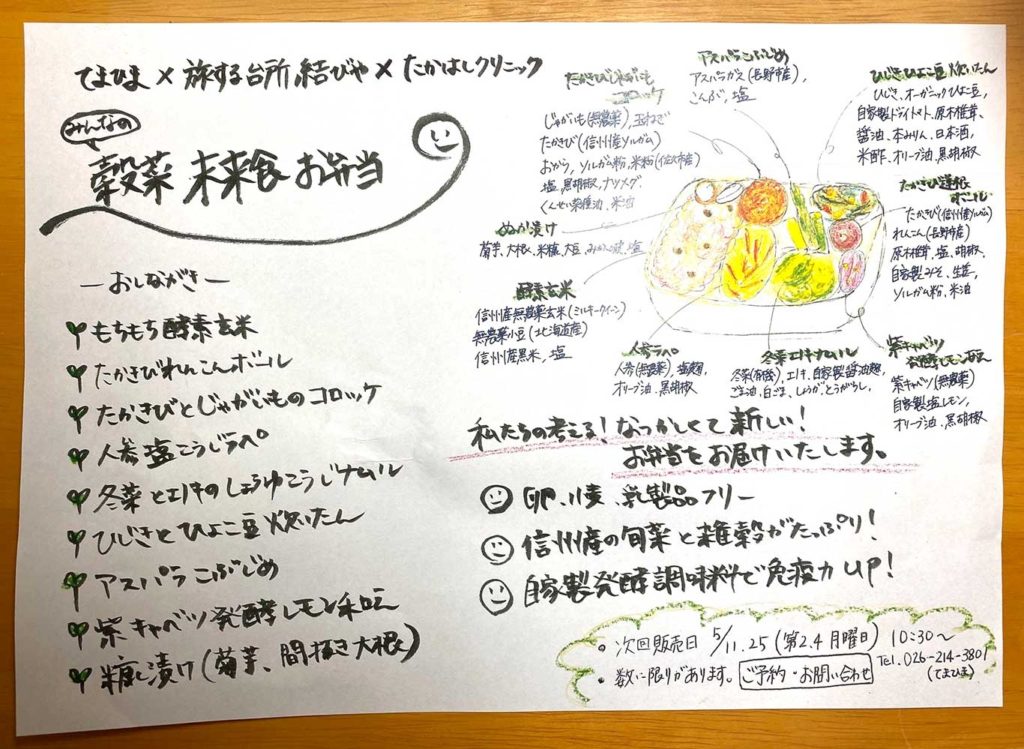 てまひま×旅する台所 結びや×たかはしクリニック
みんなの
穀菜 未来食 お弁当
―おしながき―
もちもち酵素玄米
たかきびれんこんボール
たかきびとじゃがいものコロッケ
人参塩こうじラペ
冬菜とエノキのしょうゆこうじナムル
ひじきとひよこ豆炊いたん
アスパラこぶじめ
紫キャベツ発酵レモン和え
糠漬け(菊芋、間引き大根)
たかきびじゃがいも
コロッケ
じゃがいも(無農薬)、玉ねぎ
たかきび(信州産ソルガム)
おから、ソルガム粉、米粉(佐久市産)
塩、黒胡椒、ナツメグ、
くんせい菜種油、米油
アスパラこぶじめ
アスパラガス(長野市産)、
こんぶ、塩
ひじきひよこ豆炊いたん
ひじき、オーガニックひよこ豆、
自家製ドライトマト、原木椎茸、
醤油、本みりん、日本酒、
米酢、オリーブ油、黒胡椒
ぬか漬け
菊芋、大根、米糠、大豆、みかんの皮、塩
たかきび蓮根
ボール
たかきび(信州産ソルガム)
れんこん(長野市産)
原木椎茸、塩、胡椒、
自家製みそ、生姜、
ソルガム粉、米油
酵素玄米
信州産無農薬玄米(ミルキークイーン)
無農薬小豆(北海道産)
信州産黒米、塩
人参ラペ
人参(無農薬)、塩麹、
オリーブ油、黒胡椒
冬菜エノキナムル
冬菜(有機)、エノキ、自家製醤油麹、
ごま油、白ごま、しょうが、とうがらし、
紫キャベツ
発酵レモン和え
紫キャベツ(無農薬)
自家製塩レモン、
オリーブ油、黒胡椒
私たちの考える!なつかしくて新しい!
お弁当をお届けいたします。
卵、小麦、乳製品フリー
信州産の旬菜と雑穀がたっぷり!
自家製発酵調味料で免疫力UP!
・次回販売日 5/11.25(第2.4月曜日) 10:30~
・数に限りがあります。ご予約・お問い合わせ Tel.026-214-3801
(てまひま)